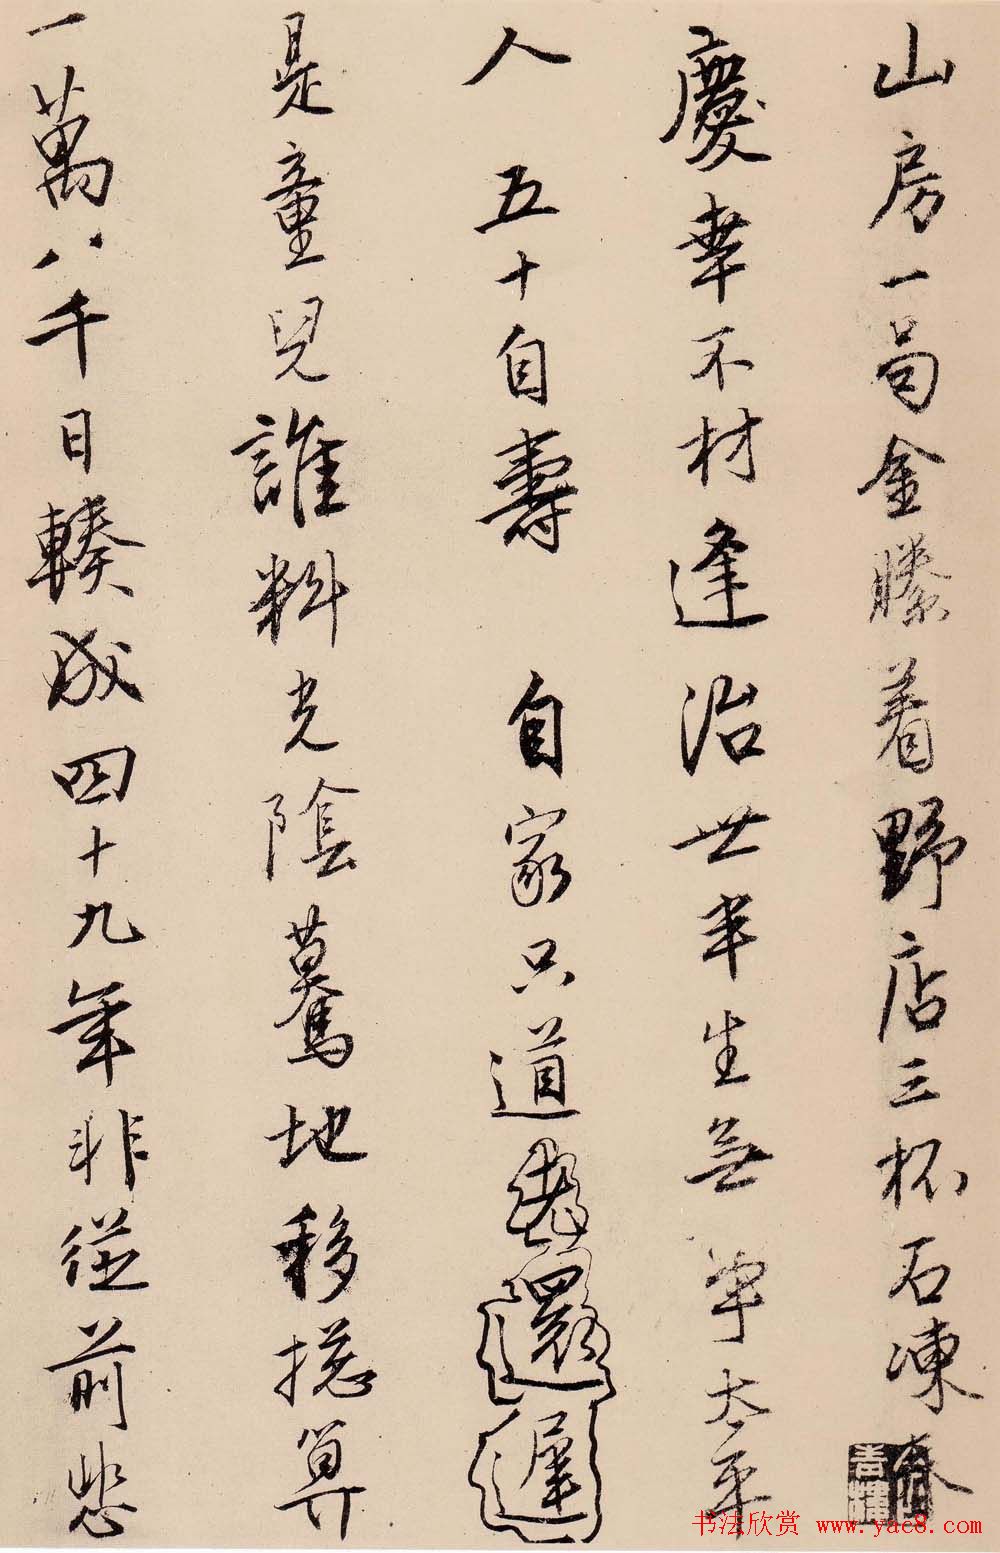 山房一局金縢着野店三杯石凍春
慶幸不材逢治世半生無事太平
人 五十自壽 自家只道老還遲
是童兒誰料光陰驀地移揔算
一萬八千日輳成四十九年非從前悲
书法欣赏 www.yac8.com